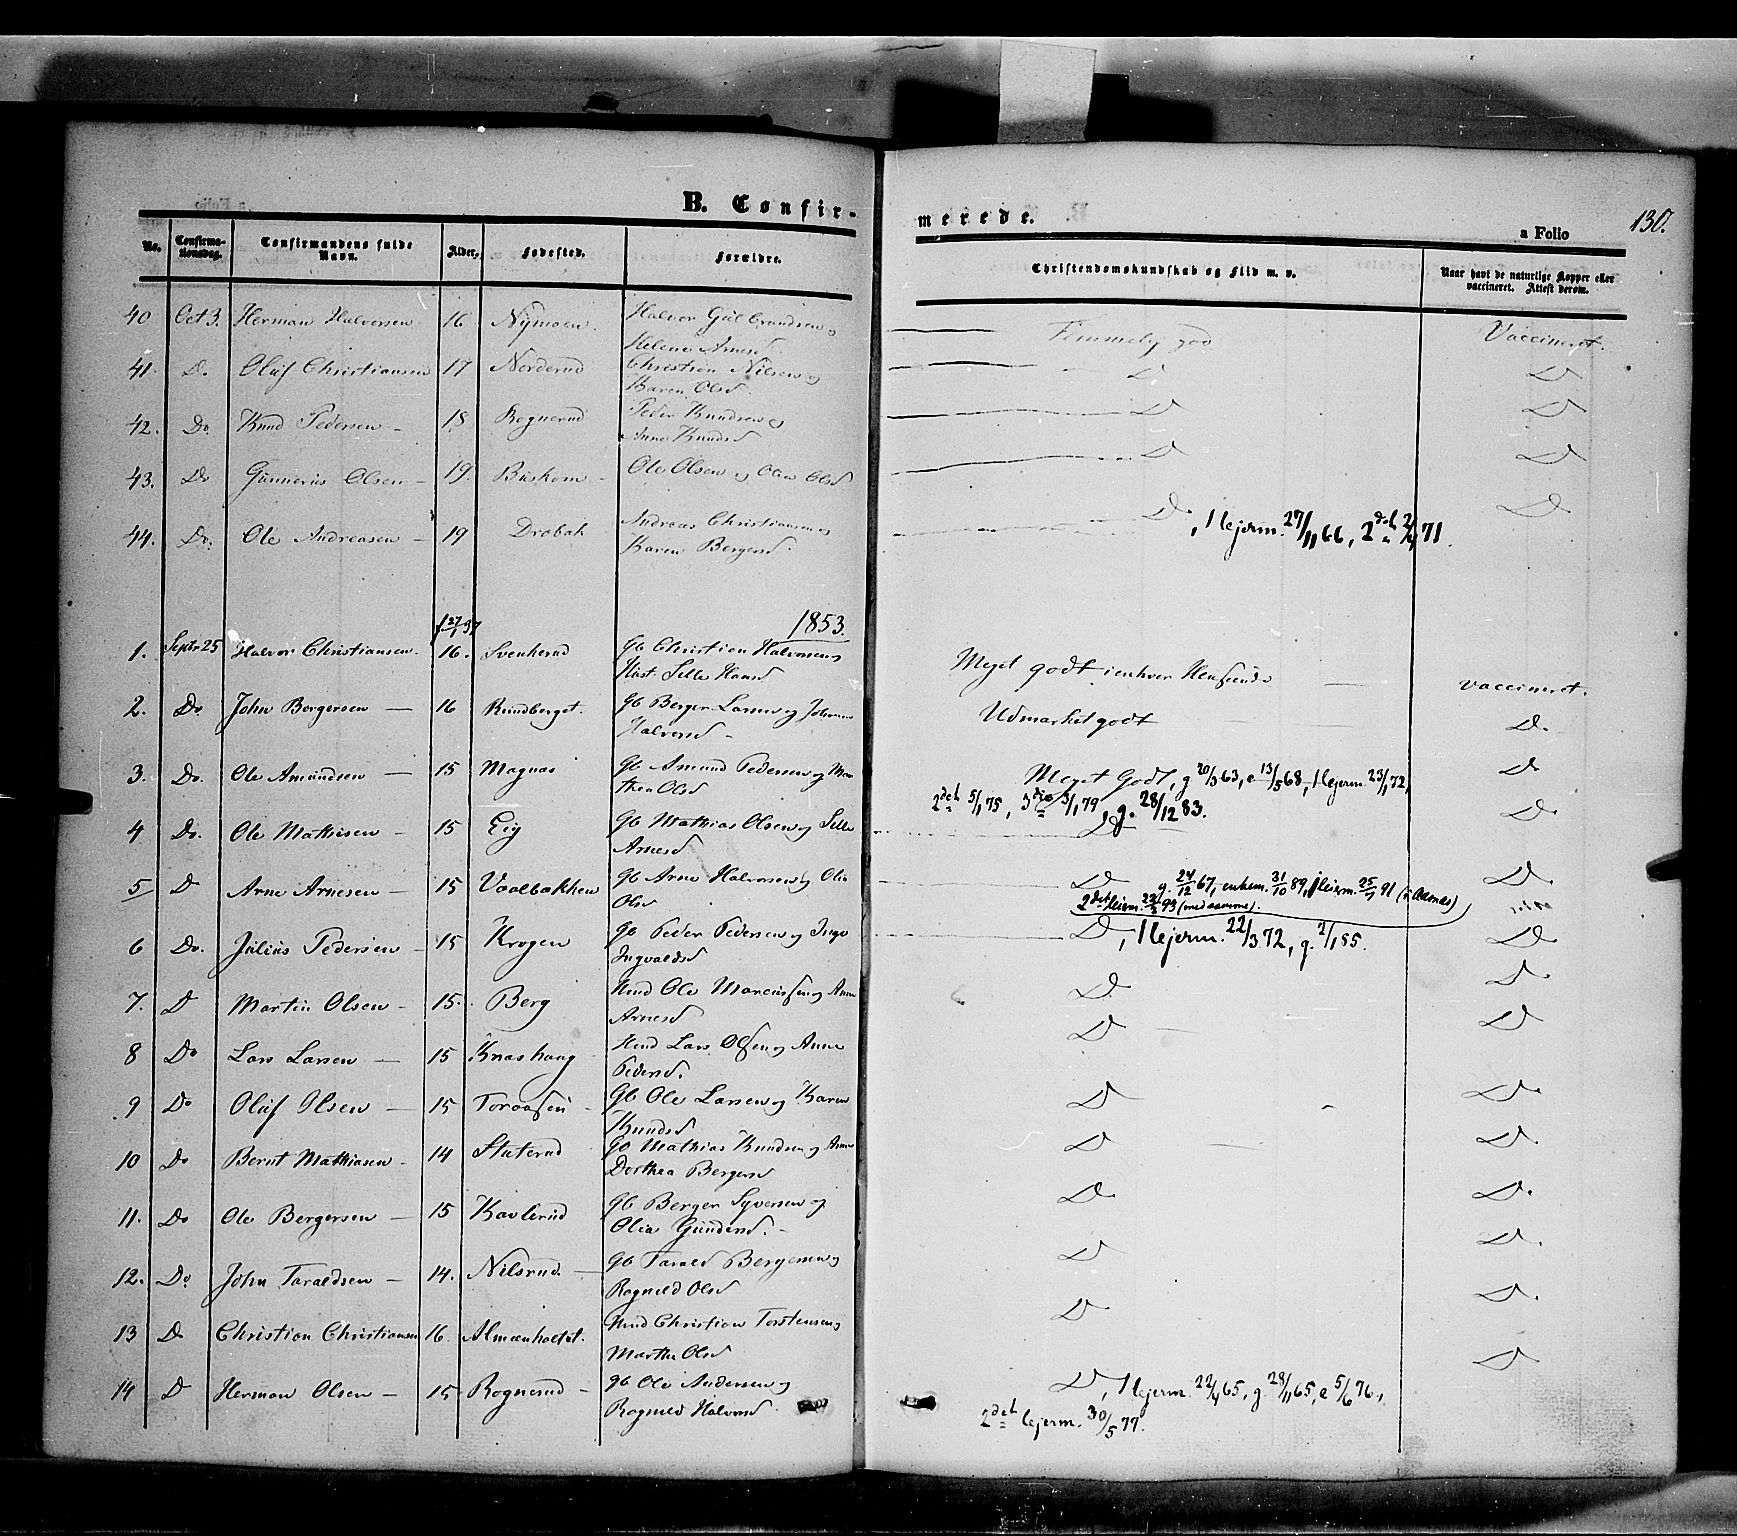 B. Confir-
merede.
a Folio
130.
No.
Confirma-
tionsdag.
Confirmandens fulde
Navn.
Alder.
Fødested.
Forældre.
Christendomskundskab og Flid m. v.
Naar havt de naturlige Kopper eller
vaccineret. Attest derom.
40 Oct 3. Herman Halvorsen 16 Nymoen. Halvor Gulbrandsen og
Helene Arnesd Temmelig god Vaccineret.
41. D. Oluf Christiansen 17 Norderud Christian Nilsen og
Karen Olsd. D D
42. Do Knud Pedersen - 18 Rognerud Peder Knudsen og
Anne Knudsd D D
43. Do Gunnerius Olsen - 19. Ole Olsen og Olea Olsd D D
44. Do. Ole Andreasen - 19 Drøbak Andreas Christiansen og
Karen Bergersd. D, 1 lejerm. 27/11 66, 2det 2/4 71. D
1853.
27/1 37
1. Septr 25 Halvor Christiansen. 16. Svenkerud Gb Christian Halvorsen og
Hust. Sille Hansd Meget godt i enhver Henseende vaccineret.
2. Do. John Bergersen — 16 Rundberget. Gb Berger Larsen og Johanne
Halvorsd - Udmærket godt D.
3. Do. Ole Amundsen — 15 Magnas Gb Amund Pedersen og Mar
thea Olsd Meget Godt, g 20/3 63, e 13/5 68, 1 lejerm. 23/1 72, D
2det 5/1 75, 3die 3/1 79, g. 28/12 83.
4 Do. Ole Mathisen — 15 Eig Gb Mathias Olsen og Sille
Arnesd D D
5 D Arne Arnesen — 15 Vaalbakken Gb Arne Halvorsen og Olia
Olsd D g. 24/12 67, enkem. 31/10 89, 1 leierm. 25/1 91 (i Aasnes) D
2det leierm. 22/3 93 (med samme).
6 Do. Julius Pedersen — 15 Krogen Gb Peder Pedersen og Inge
Ingvaldsd D, 1 lejerm. 22/3 72, g. 2/1 55. D
7. D Martin Olsen - 15. Berg Hmd Ole Marcussen og Anne
Arnesd D D
8 Do Lars Larsen — 15 Knashaug Hmd Lars Olsen og Anne
Pedersd. D D
9 Do Oluf Olsen — 15 Toraasen - Gb Ole Larsen og Karen
Knudsd D D
10 Do Bernt Mathiasen - 14 Staterud Gb Mathias Knudsen og Anne
Dorthea Bergersd D D.
11. Do Ole Bergersen — 15 Kavlerud Gb Berger Syversen og
Olia Gundersd. - D D.
12. Do John Taraldsen — 14. Nilsrud. — Gb Tarald Bergersen og
Rognild Olsd D D.
13 Do Christian Christiansen 16. Hmd Christian Torstensen og
Marthe Olsd D D.
14 D Herman Olsen — 15 Rognerud - Gb Ole Andersen og
Rognild Halvorsd. D, 1 lejerm. 22/4 65, g. 28/11 65, e 5/6 76, D
2det lejerm. 30/5 77.